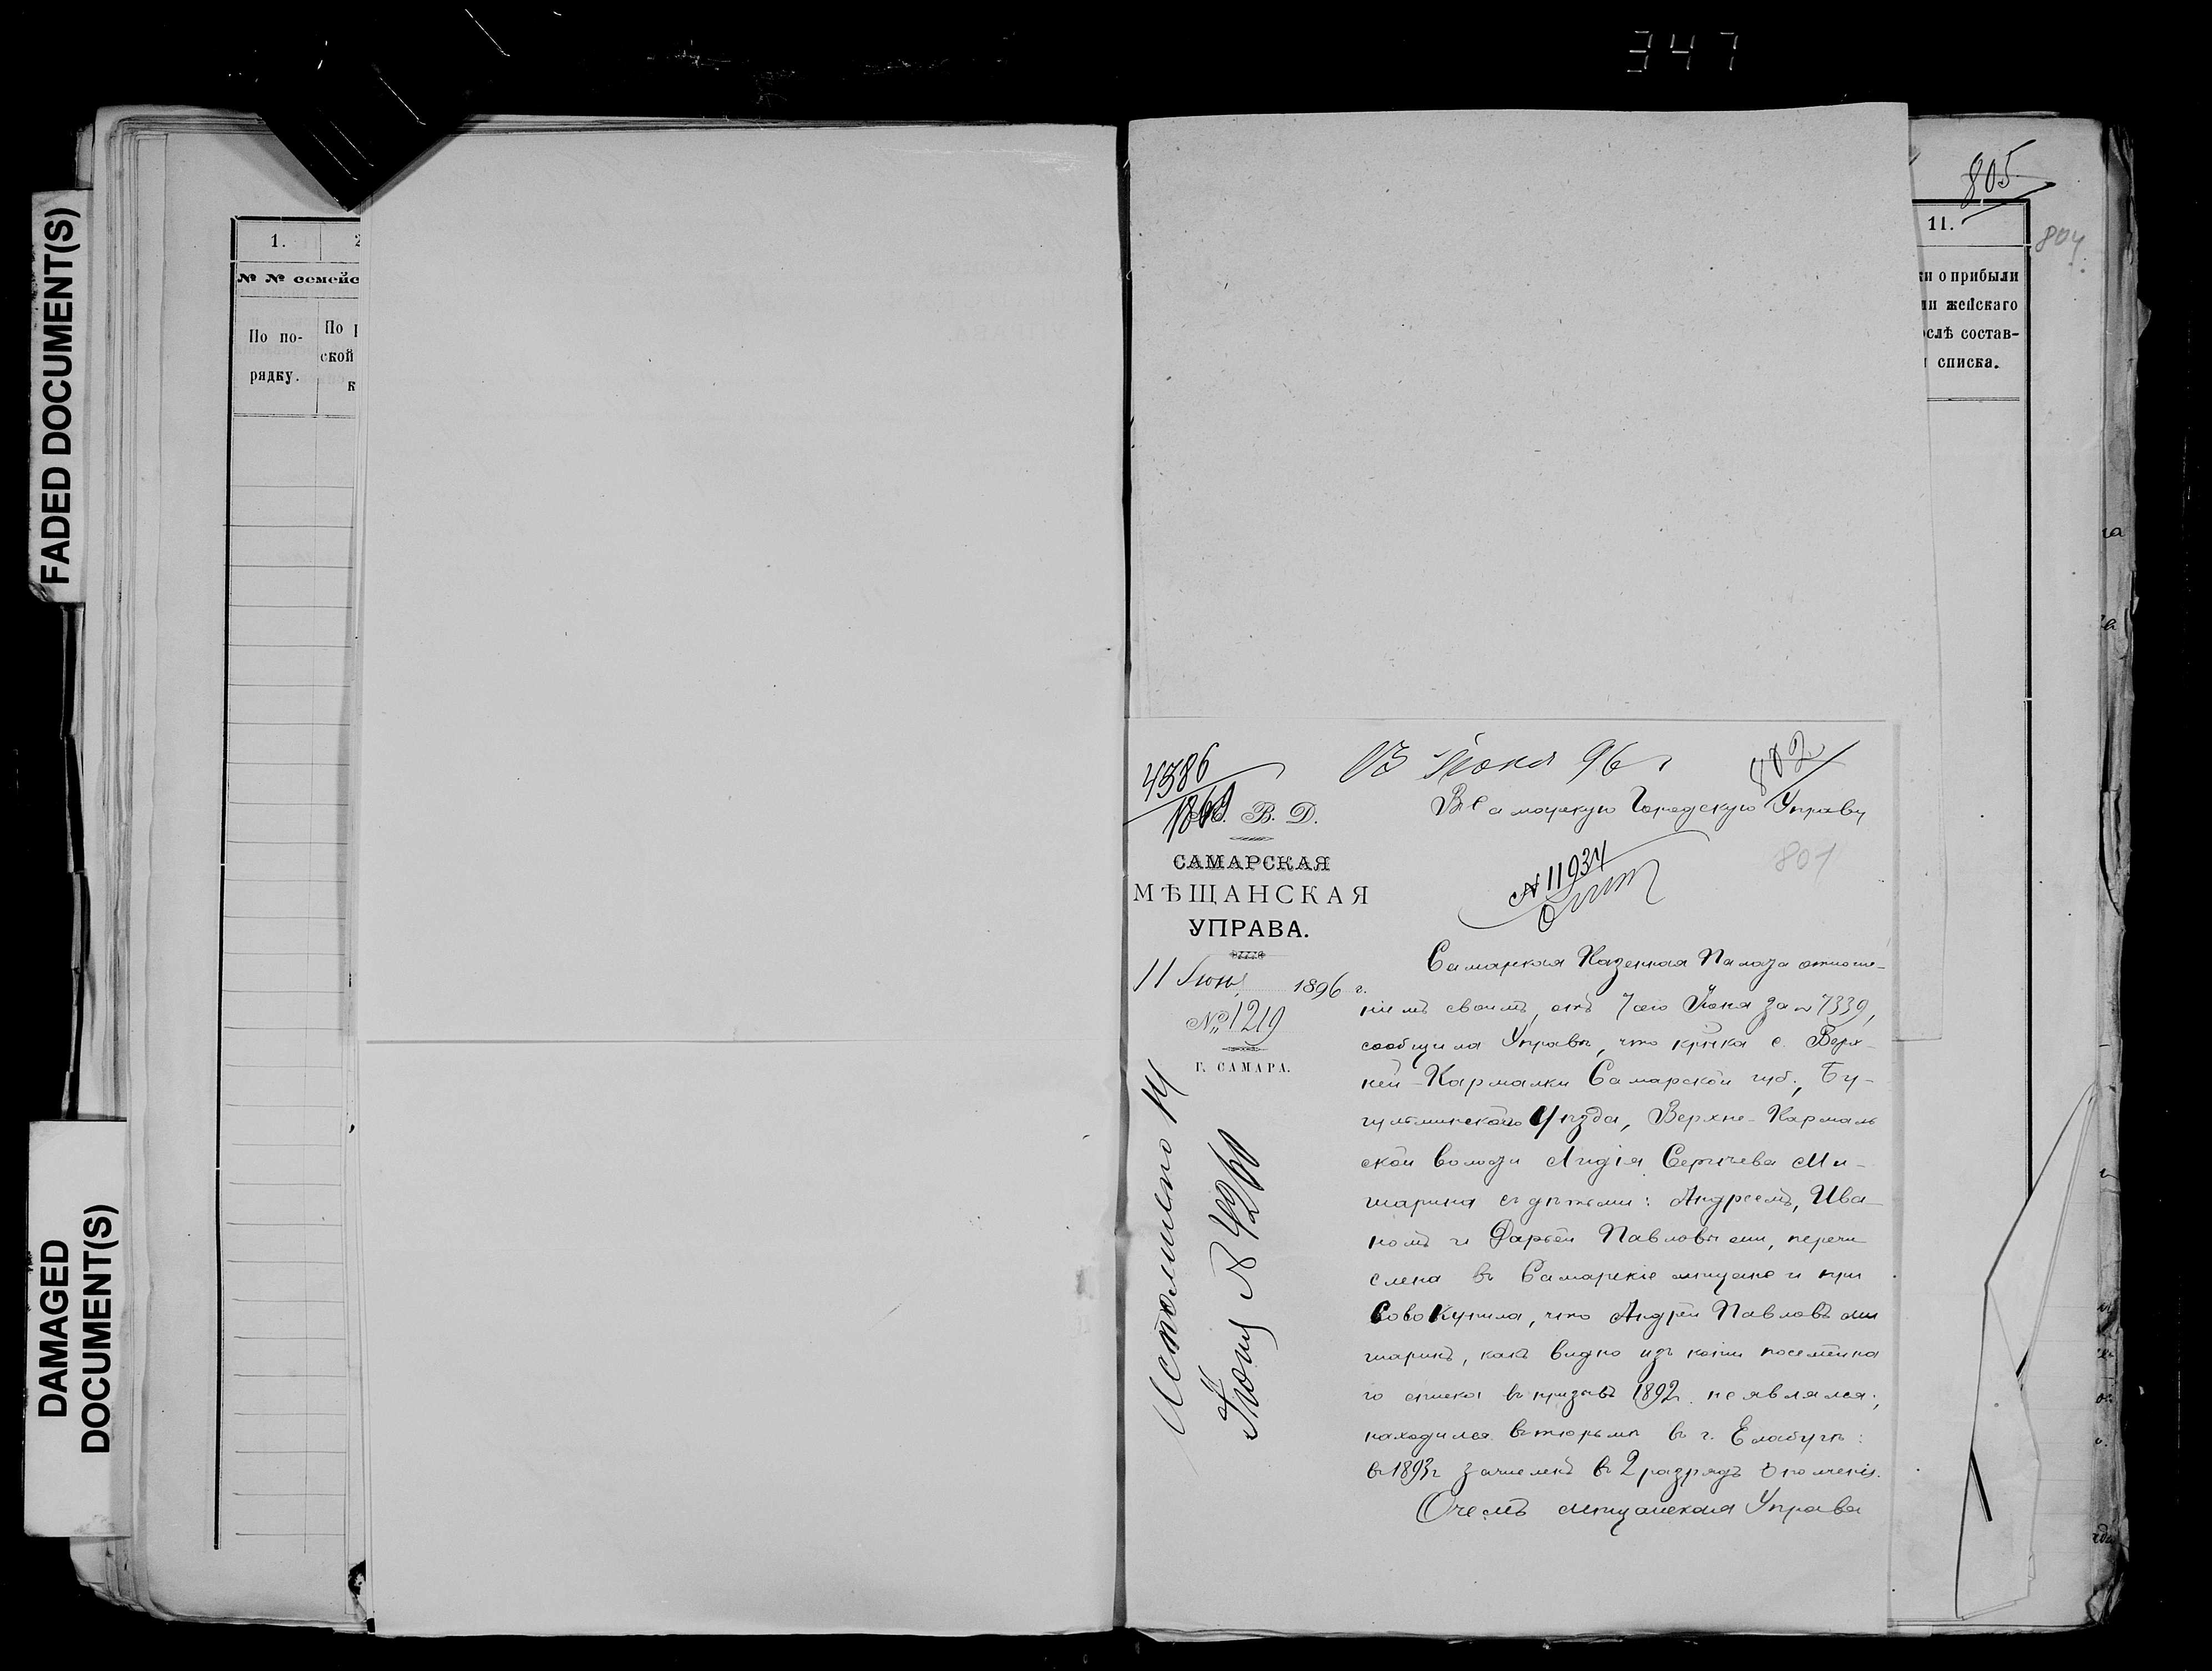 347
FADED DOCUMENT(S)
DAMAGED
DOCUMENT(S)
1.
2
№ № семейс
По по-
рядку.
По р
ской
к
805
804
11.
ки о прибыли
ли женскаго
ослѣ состав-
списка.
4386
13 Июня 96 г
802
В. Д.
Въ Самарскую Городскую Управу
САМАРСКАЯ
МѢЩАНСКАЯ
УПРАВА.
№ 11934
801
11 Июня 1896 г.
№ 1219
Г. САМАРА.
Исполнено 14
Июня № 4260
Самарская Казенная Палата отноше-
ніемъ своимъ, отъ 7 сего Июня за № 7339,
сообщила Управѣ, что кр-нка с. Верх-
ней-Кармалки Самарской губ., Бу-
гульминскаго Уѣзда, Верхне-Кармаль
ской волости Лидія Сергѣева Ми-
шарина съ дѣтьми: Андреемъ, Ива-
номъ и Дарьей Павловыми, перечи
слена въ Самарскіе мѣщане и при
совокупила, что Андрей Павловъ Ми
шаринъ, какъ видно изъ копіи посемейна
го списка въ призывъ 1892 г. не являлся;
находился въ тюрьмѣ въ г. Елабугѣ:
въ 1893 г зачисленъ въ 2 разрядъ ополченія.
О чемъ мѣщанская Управа